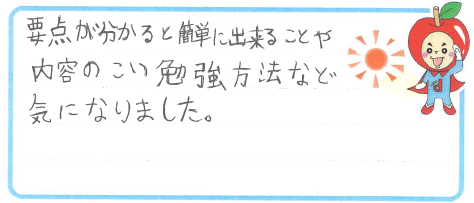 要点が分かると簡単に出来ることや
内容のこい勉強方法など
気になりました。